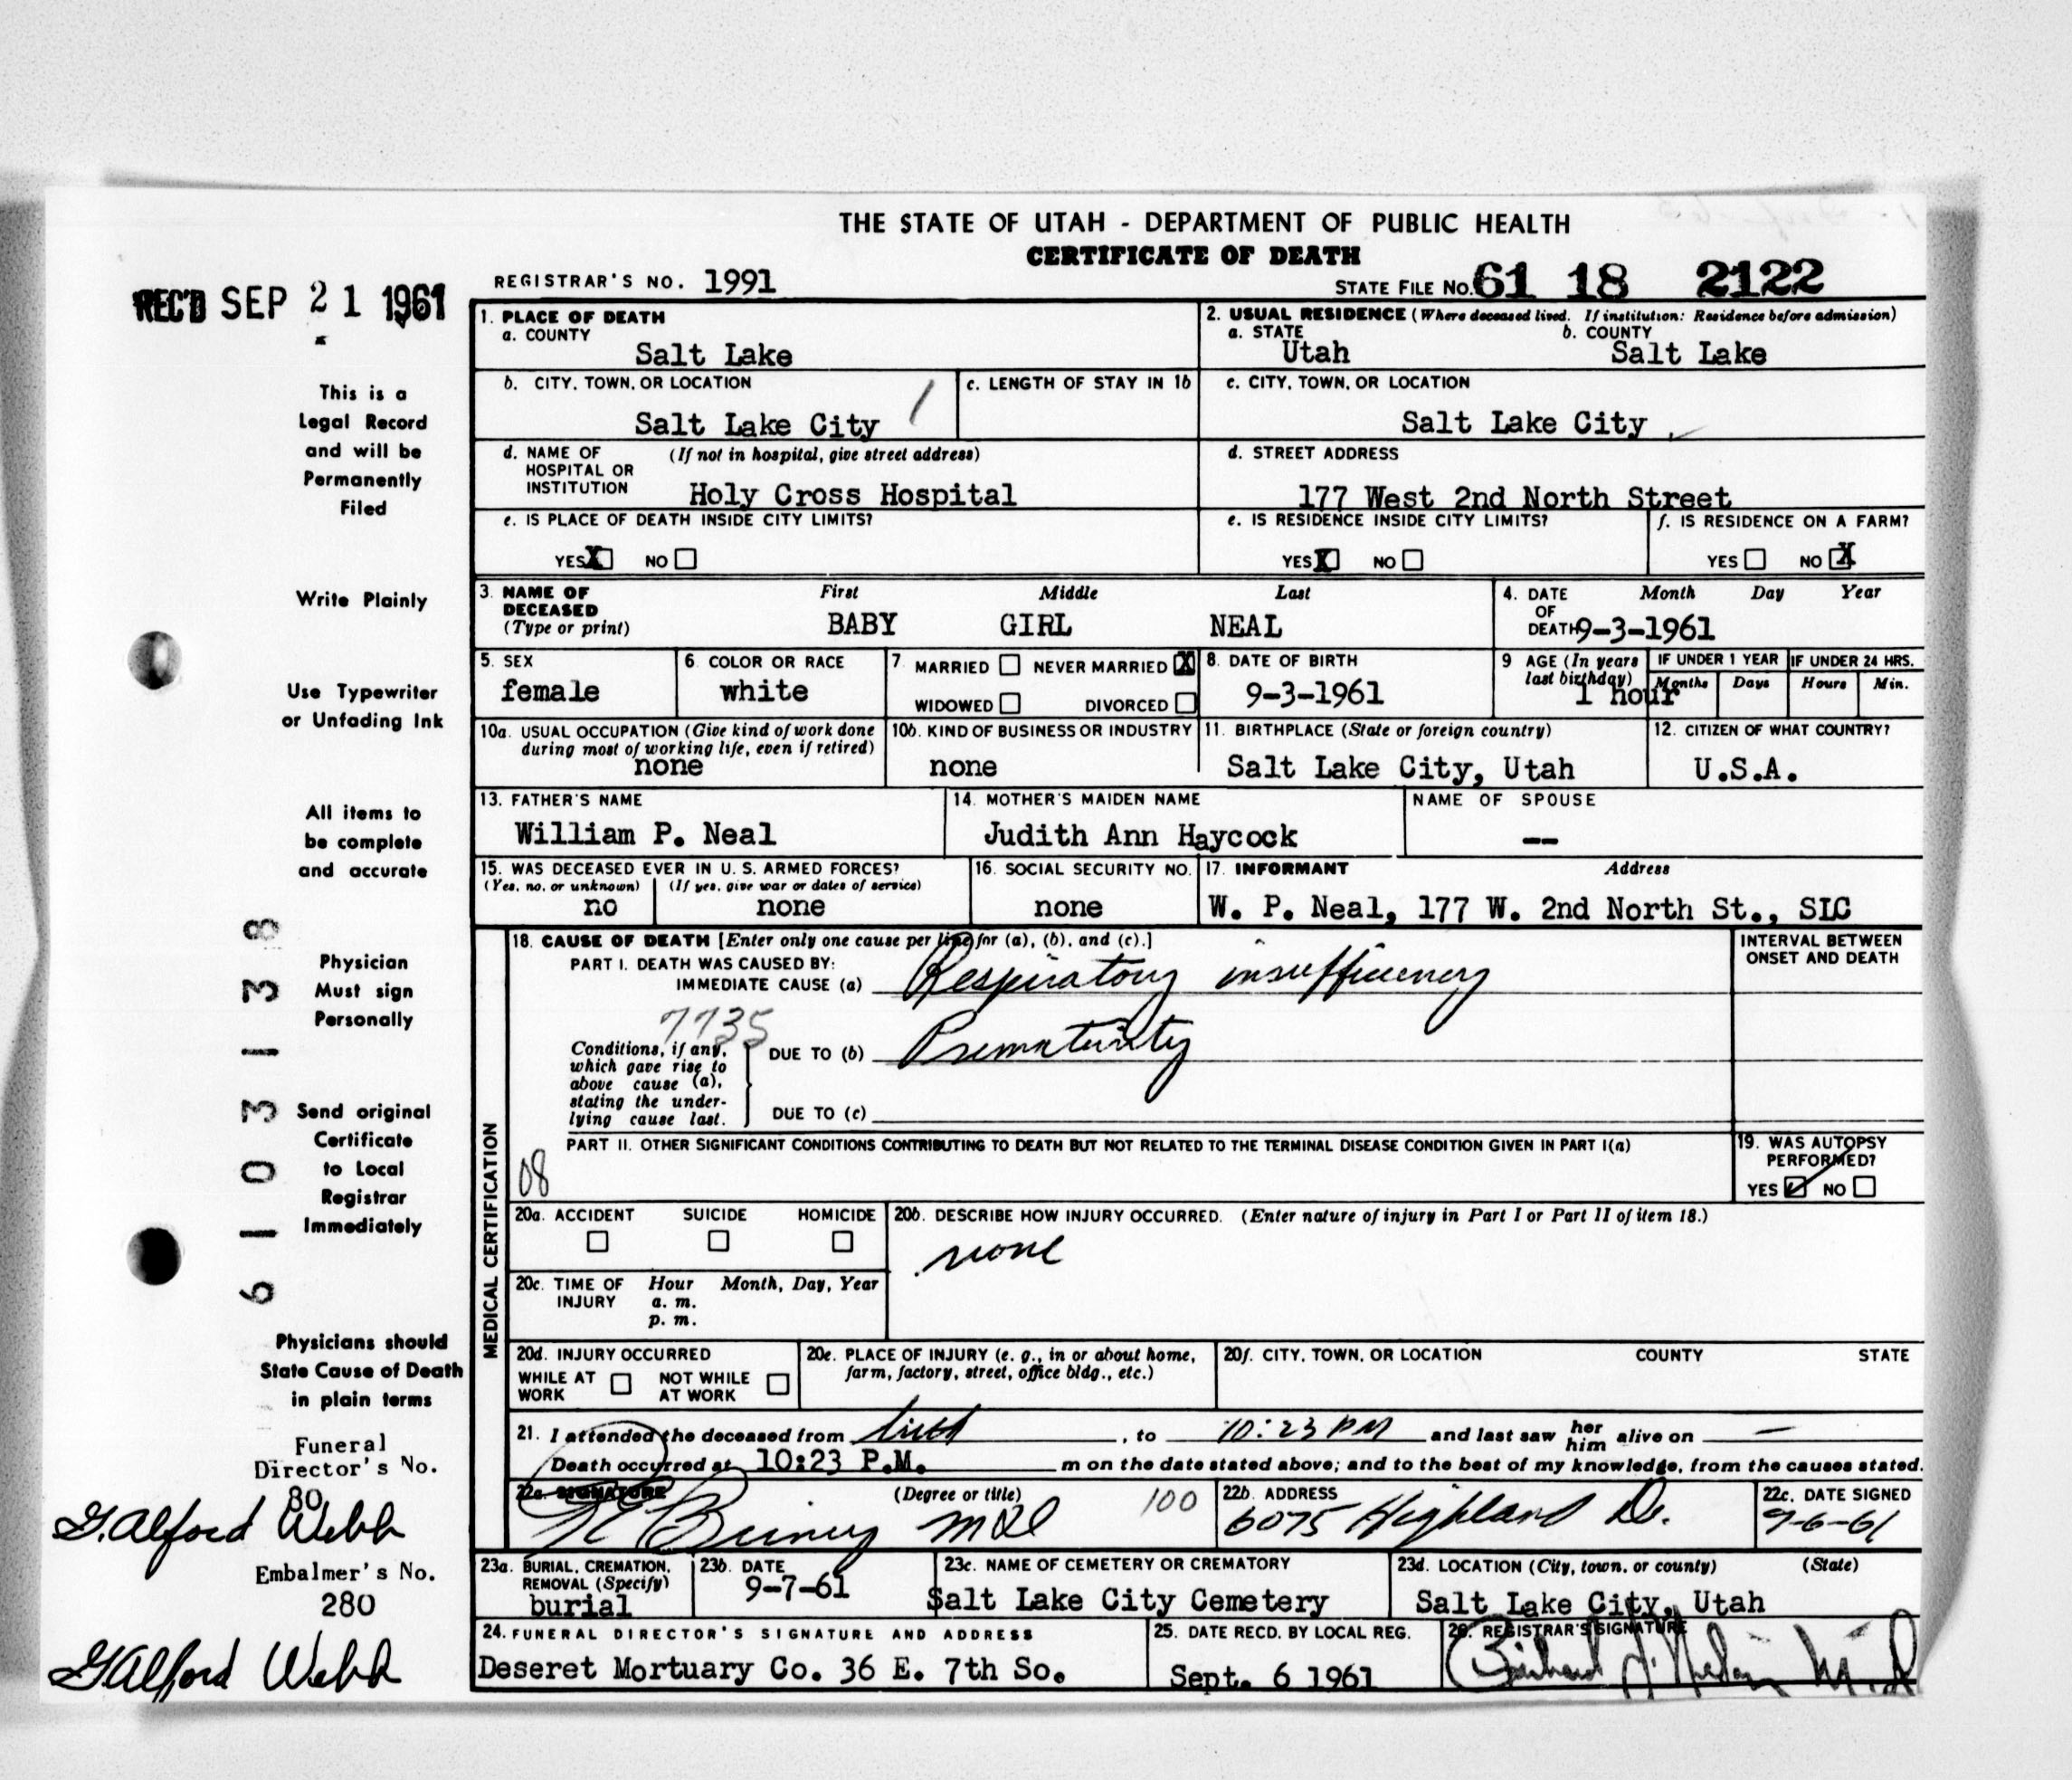 THE STATE OF UTAH - DEPARTMENT OF PUBLIC HEALTH
CERTIFICATE OF DEATH
REGISTRAR'S NO. 1991
STATE FILE NO. 61 18 2122
REC'D SEP 21 1961
1. PLACE OF DEATH
a. COUNTY
Salt Lake
2. USUAL RESIDENCE (Where deceased lived. If institution: Residence before admission)
a. STATE
Utah
b. COUNTY
Salt Lake
b. CITY, TOWN, OR LOCATION
Salt Lake City
c. LENGTH OF STAY IN 1b
c. CITY, TOWN, OR LOCATION
Salt Lake City
d. NAME OF HOSPITAL OR INSTITUTION
(If not in hospital, give street address)
Holy Cross Hospital
d. STREET ADDRESS
177 West 2nd North Street
e. IS PLACE OF DEATH INSIDE CITY LIMITS?
YES X NO
e. IS RESIDENCE INSIDE CITY LIMITS?
YES X NO
f. IS RESIDENCE ON A FARM?
YES NO X
3. NAME OF DECEASED (Type or print)
First Middle Last
BABY GIRL NEAL
4. DATE OF DEATH
Month Day Year
9-3-1961
5. SEX
female
6. COLOR OR RACE
white
7. MARRIED NEVER MARRIED X
WIDOWED DIVORCED
8. DATE OF BIRTH
9-3-1961
9 AGE (In years last birthday)
1 hour
IF UNDER 1 YEAR
Months Days
IF UNDER 24 HRS.
Hours Min.
10a. USUAL OCCUPATION (Give kind of work done during most of working life, even if retired)
none
10b. KIND OF BUSINESS OR INDUSTRY
none
11. BIRTHPLACE (State or foreign country)
Salt Lake City, Utah
12. CITIZEN OF WHAT COUNTRY?
U.S.A.
13. FATHER'S NAME
William P. Neal
14. MOTHER'S MAIDEN NAME
Judith Ann Haycock
NAME OF SPOUSE
--
15. WAS DECEASED EVER IN U. S. ARMED FORCES?
(Yes, no, or unknown) (If yes, give war or dates of service)
no none
16. SOCIAL SECURITY NO.
none
17. INFORMANT Address
W. P. Neal, 177 W. 2nd North St., SLC
MEDICAL CERTIFICATION
18. CAUSE OF DEATH [Enter only one cause per line for (a), (b), and (c).]
PART I. DEATH WAS CAUSED BY:
IMMEDIATE CAUSE (a) Respiratory insufficiency
7735
Conditions, if any, which gave rise to above cause (a), stating the under-lying cause last.
DUE TO (b) Prematurity
DUE TO (c)
INTERVAL BETWEEN ONSET AND DEATH
PART II. OTHER SIGNIFICANT CONDITIONS CONTRIBUTING TO DEATH BUT NOT RELATED TO THE TERMINAL DISEASE CONDITION GIVEN IN PART I(a)
08
19. WAS AUTOPSY PERFORMED?
YES NO
20a. ACCIDENT SUICIDE HOMICIDE
20b. DESCRIBE HOW INJURY OCCURRED. (Enter nature of injury in Part I or Part II of item 18.)
none
20c. TIME OF INJURY
Hour Month, Day, Year
a. m.
p. m.
20d. INJURY OCCURRED
WHILE AT WORK NOT WHILE AT WORK
20e. PLACE OF INJURY (e. g., in or about home, farm, factory, street, office bldg., etc.)
20f. CITY, TOWN, OR LOCATION COUNTY STATE
21. I attended the deceased from birth, to 10:23 PM and last saw her him alive on —
Death occurred at 10:23 P.M. m on the date stated above; and to the best of my knowledge, from the causes stated.
22a. SIGNATURE (Degree or title)
MD
100
22b. ADDRESS
6075 Highland Dr.
22c. DATE SIGNED
9-6-61
23a. BURIAL, CREMATION, REMOVAL (Specify)
burial
23b. DATE
9-7-61
23c. NAME OF CEMETERY OR CREMATORY
Salt Lake City Cemetery
23d. LOCATION (City, town, or county) (State)
Salt Lake City, Utah
24. FUNERAL DIRECTOR'S SIGNATURE AND ADDRESS
Deseret Mortuary Co. 36 E. 7th So.
25. DATE RECD. BY LOCAL REG.
Sept. 6 1961
26. REGISTRAR'S SIGNATURE
This is a
Legal Record
and will be
Permanently
Filed
Write Plainly
Use Typewriter
or Unfading Ink
All items to
be complete
and accurate
Physician
Must sign
Personally
Send original
Certificate
to Local
Registrar
Immediately
Physicians should
State Cause of Death
in plain terms
61 03 1 38
Funeral
Director's No.
80
G. Alford Webb
Embalmer's No.
280
G Alford Webb